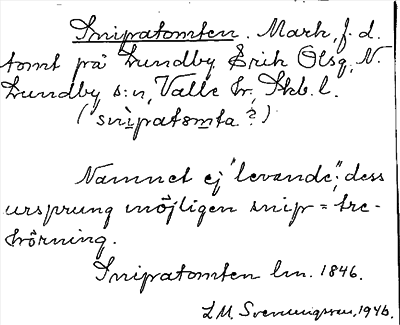 Snipatomten. Mark, f. d.
tomt på Lundby Erik Olsg, N.
Lundby s:n, Valle hr, Skb. l.
(snipatomta?)
Namnet ej "levande", dess
ursprung möjligen snip = tre-
hörning.
Snipatomten lm. 1846.
L M. Svenungsson, 1946.